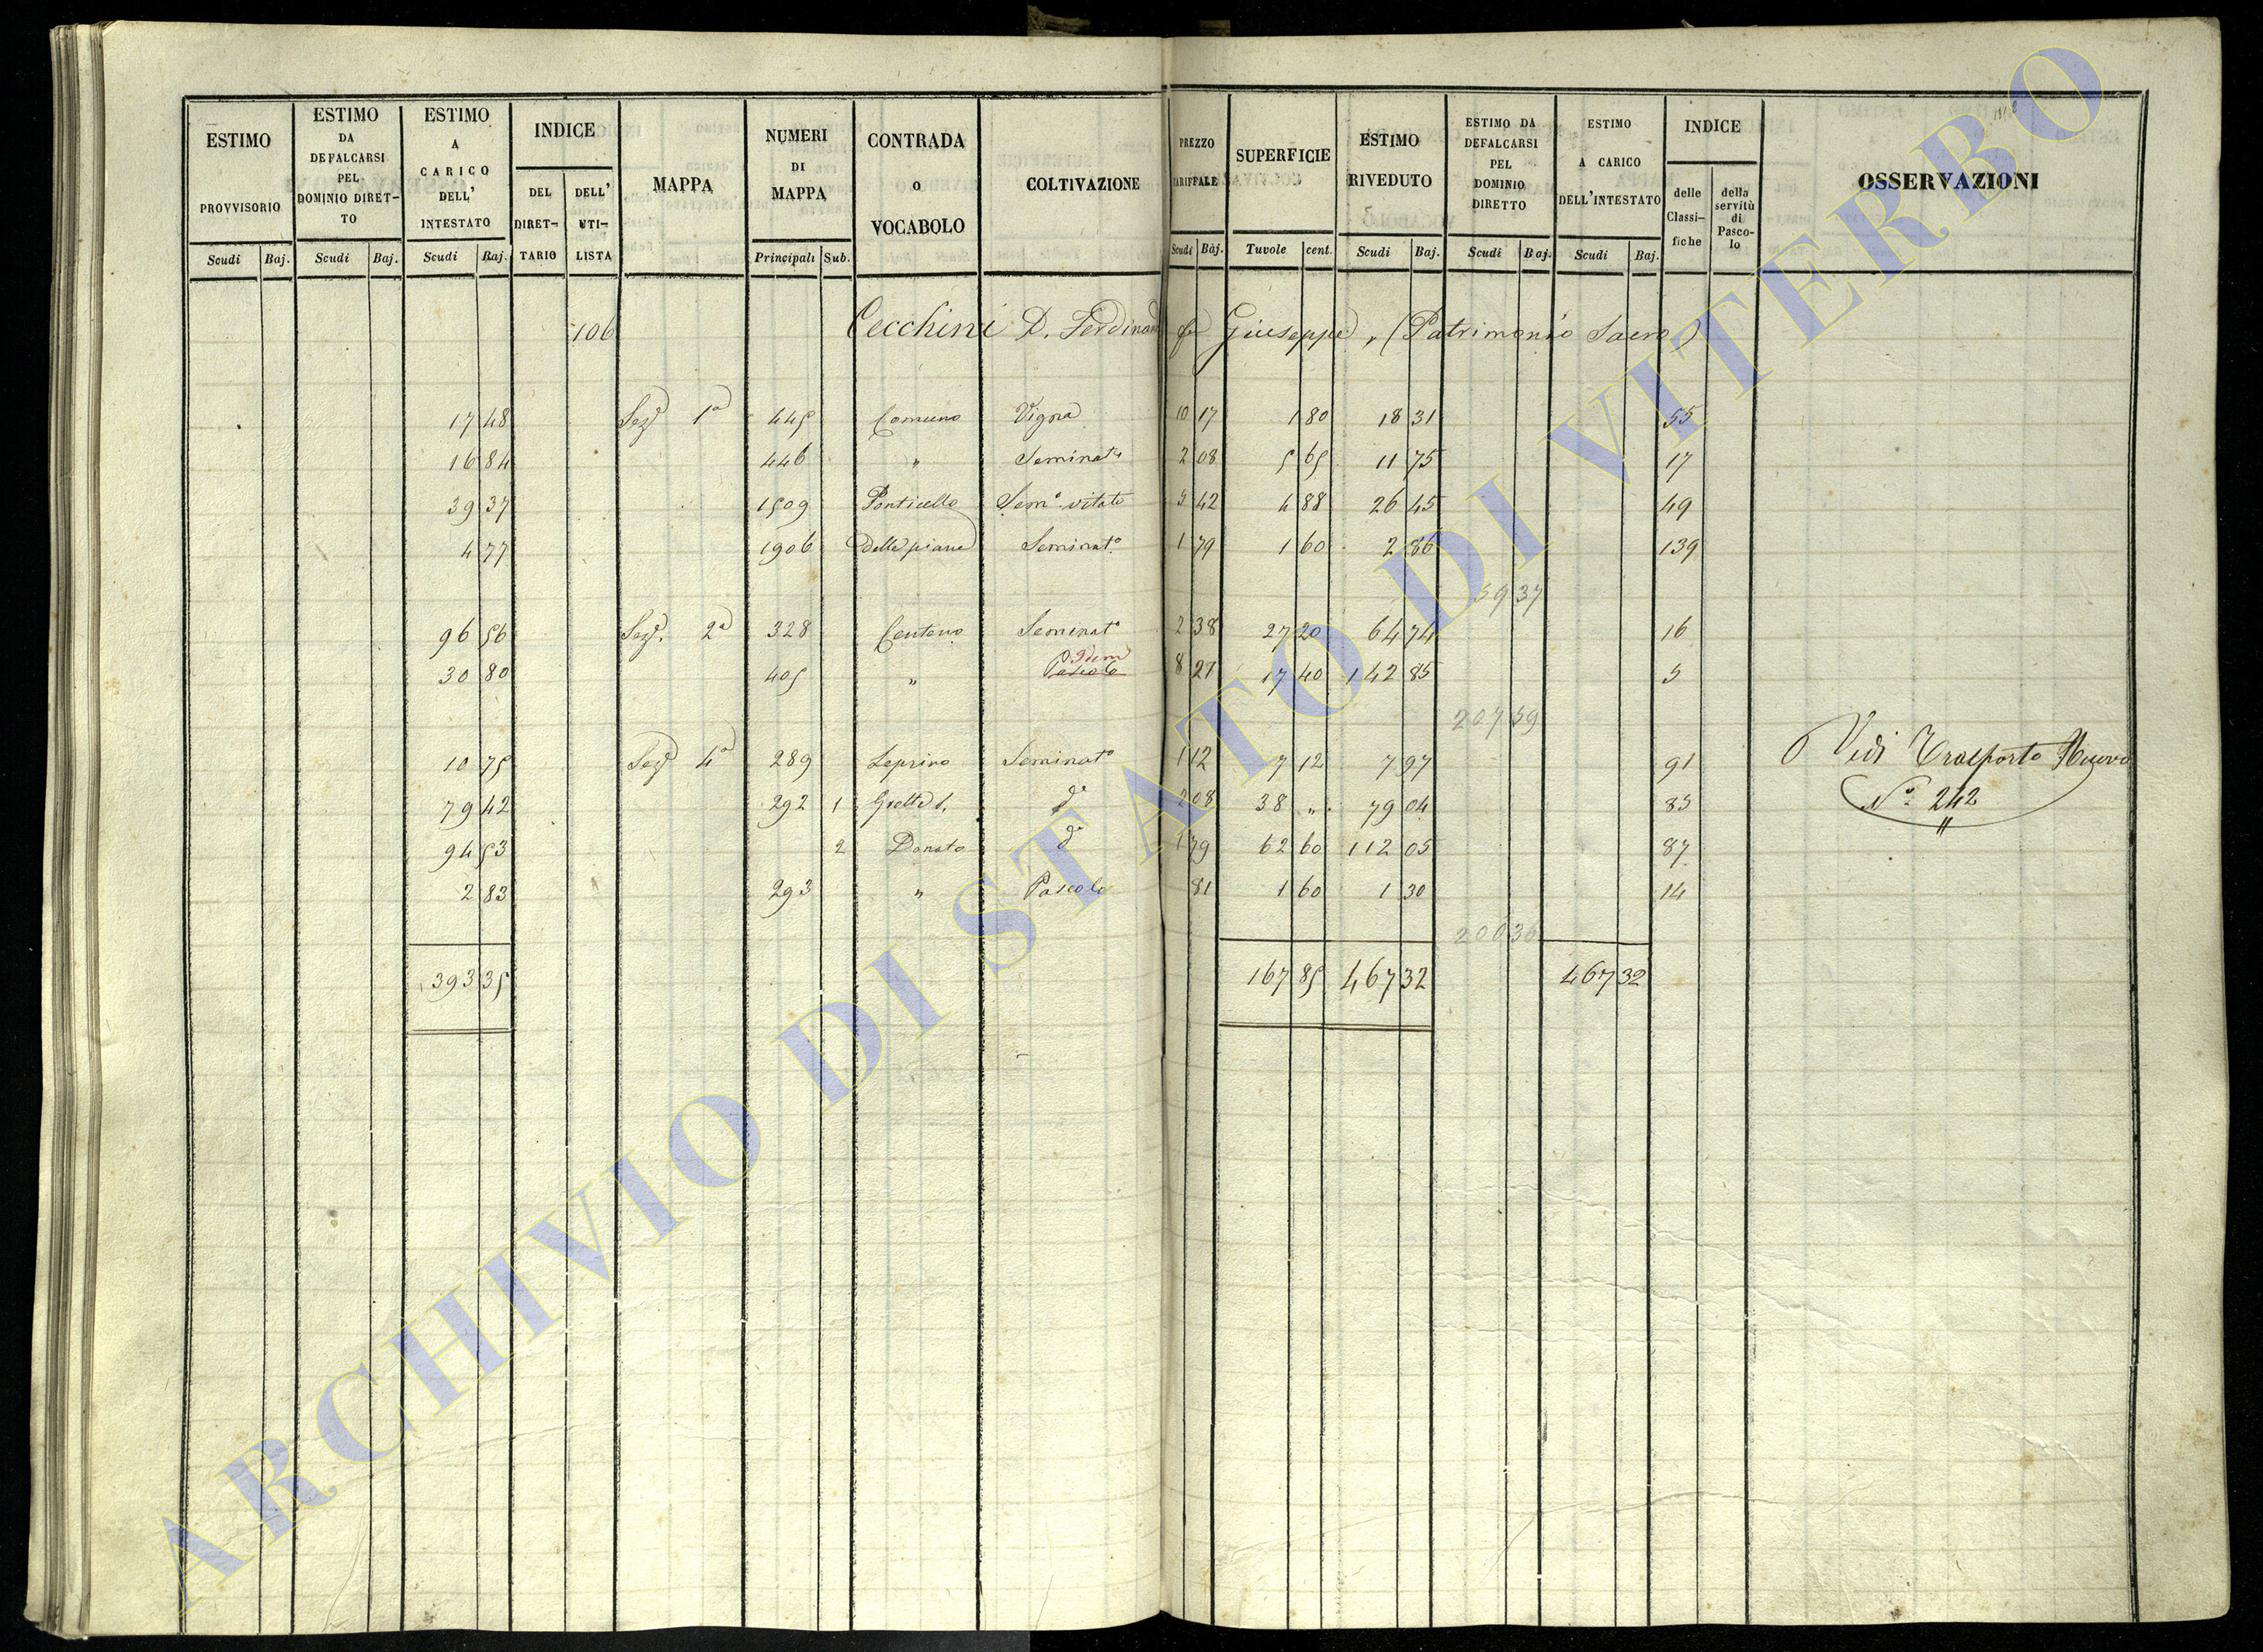 ESTIMO PROVVISORIO Scudi Baj.
ESTIMO DA DEFALCARSI PEL DOMINIO DIRET-TO Scudi Baj.
ESTIMO A CARICO DELL' INTESTATO Scudi Baj.
INDICE DEL DIRET-TARIO DELL' UTI-LISTA
MAPPA
NUMERI DI MAPPA Principali Sub.
CONTRADA O VOCABOLO
COLTIVAZIONE
PREZZO TARIFFALE Scudi Baj.
SUPERFICIE Tavole cent.
ESTIMO RIVEDUTO Scudi Baj.
ESTIMO DA DEFALCARSI PEL DOMINIO DIRETTO Scudi Baj.
ESTIMO A CARICO DELL'INTESTATO Scudi Baj.
INDICE delle Classi-fiche della servitù di Pasco-lo
OSSERVAZIONI
106 Cecchini D. Ferdinando fu Giuseppe, (Patrimonio Sacro)
17 48 Sezᵉ 1ª 445 Comuno Vigna 10 17 1 80 18 31 55
16 84 446 " Seminatº 2 08 5 65 11 75 17
39 37 1509 Ponticello Semº vitato 5 42 4 88 26 45 49
4 77 1906 Delle piane Seminatº 1 79 1 60 2 86 139
59 37
96 56 Sezᵉ. 2ª 328 Centeno Seminatº 2 38 27 20 64 74 16
30 80 405 " Pascolo Idem 8 21 17 40 142 85 5
207 59
10 75 Sezᵉ 4ª 289 Leprino Seminatº 1 12 7 12 7 97 91
79 42 292 1 Grotte S. dº 2 08 38 " 79 04 85
94 53 2 Donato dº 1 79 62 60 112 05 87
2 83 293 " Pascolo 81 1 60 1 30 14
200 36
393 35 167 85 467 32 467 32
Vedi Trasporto Nuovo
Nº 242
"
ARCHIVIO DI STATO DI VITERBO